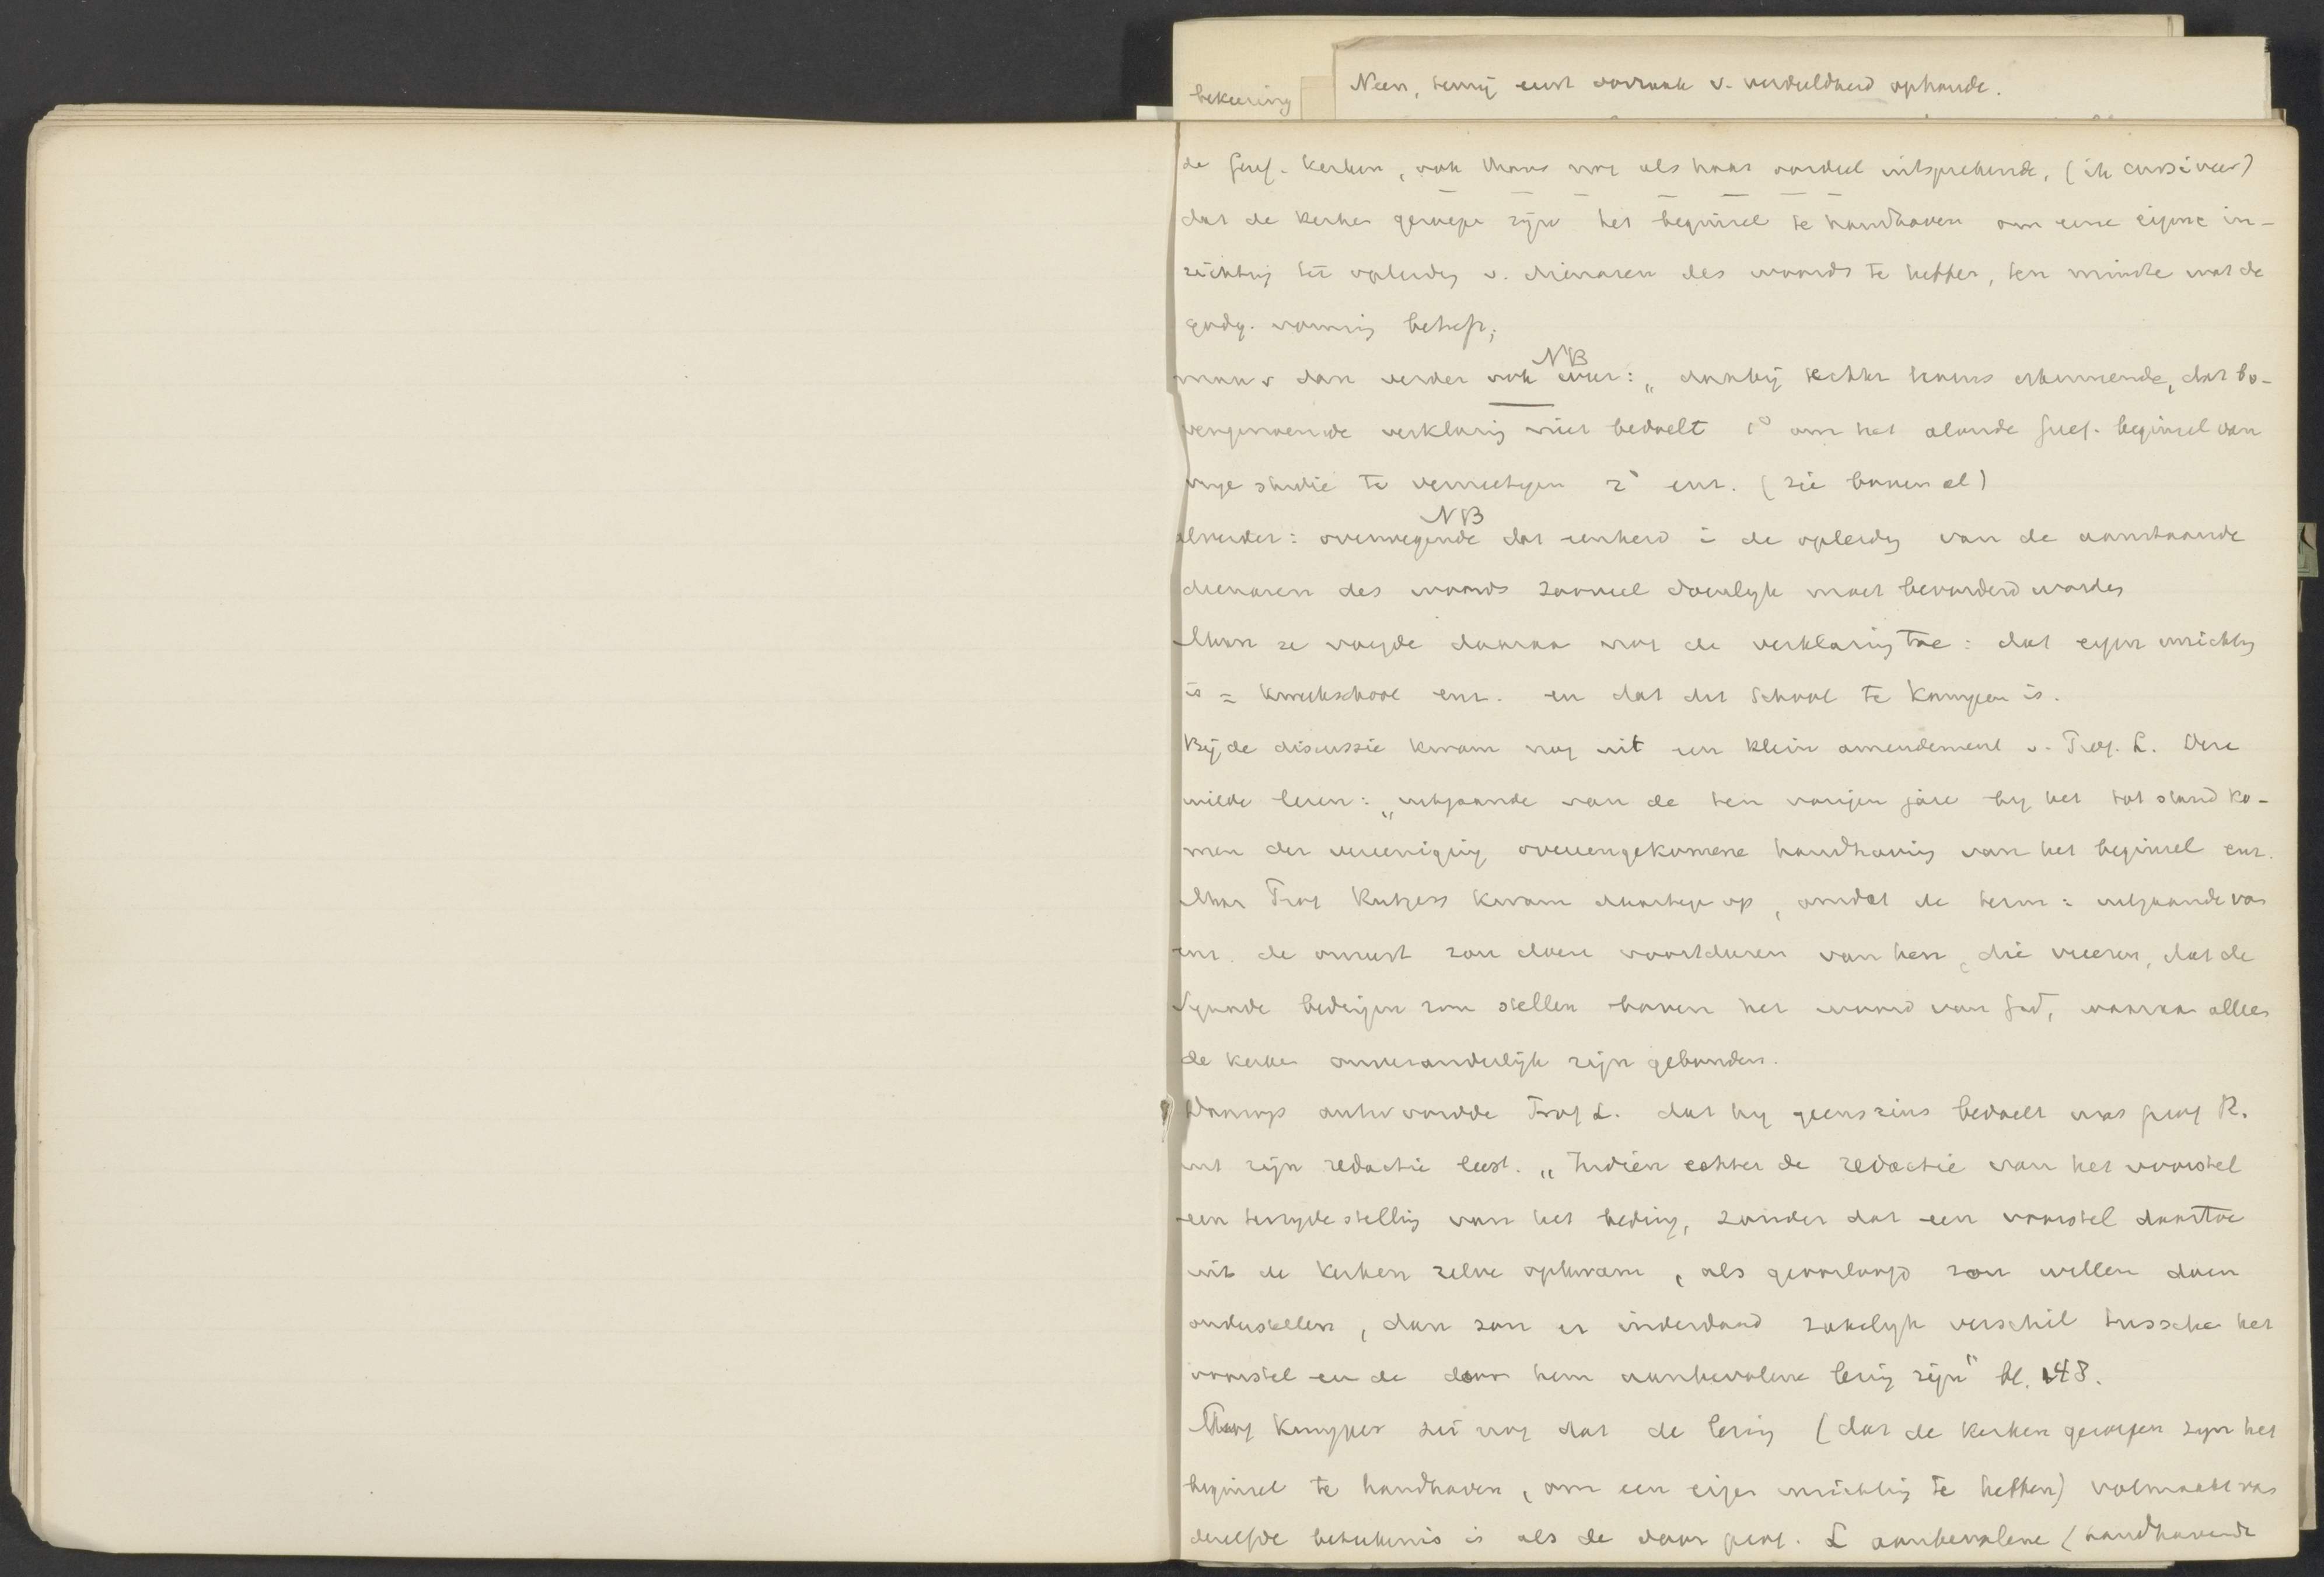 bekeering
Neen, tenzij eerst oorzaak v. verdeeldheid ophoude.
de Geref. Kerken, ook thans nog als haar oordeel uitsprekende, (ik cursiveer)
dat de kerken geroepen zijn het beginsel te handhaven om eene eigene in-
richting tot opleidg v. dienaren des woords te hebben, ten minste wat de
godg. vorming betreft;
maar dan verder ook weer: „daarbij echter tevens erkennende, dat bo-
NB
vengenoemde verklaring niet bedoelt 1° om het aloude Geref. beginsel van
vrije studie te vernietigen 2° enz. (zie boven al)
NB
alverder: overwegende dat eenheid i de opleidg van de aanstaande
dienaren des woords zooveel doenlijk moet bevorderd worden
Maar ze voegde daaraan nog de verklaring toe: dat eigen inrichtg
is = kweekschool enz. en dat die School te Kampen is.
Bij de discussie kwam nog uit een klein amendement v. Prof. L. Deze
wilde lezen: „uitgaande van de ten vorigen jare bij het tot stand ko-
men der vereeniging overeengekomene handhaving van het beginsel enz.
Maar Prof Rutgers kwam daartegen op, omdat de term: uitgaande van
enz. de onrust zou doen voortduren van hen, die vreezen, dat de
Synode bedingen zou stellen boven het woord van God, waaraan alleen
de kerken onveranderlijk zijn gebonden.
Daarop antwoordde Prof L. dat hij geenszins bedoelt wat prof R.
uit zijn redactie leest. „Indien echter de redactie van het voorstel
een terzijdestelling van het beding, zonder dat een voorstel daartoe
uit de kerken zelve opkwam, als geoorloofd zou willen doen
onderstellen, dan zou er inderdaad zakelijk verschil tusschen het
voorstel en de door hem aanbevolene lezing zijn" bl. 148.
Prof Kuyper zei nog dat de lezing (dat de kerken geroepen zijn het
beginsel te handhaven, om een eigen inrichting te hebben) volmaakt van
dezelfde beteekenis is als de door prof. L aanbevolene (handhavende